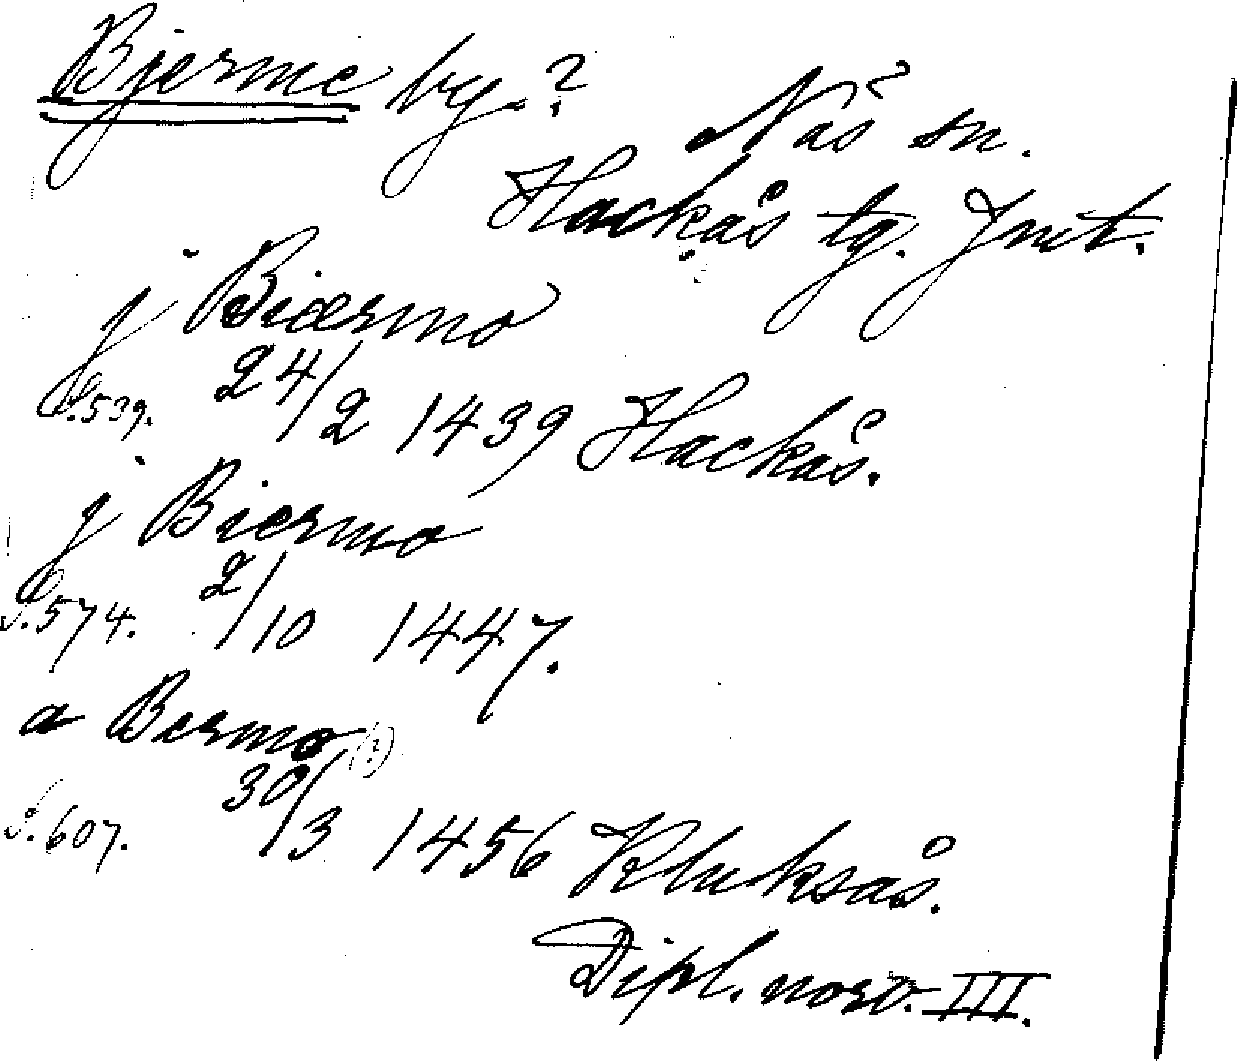 Bjerme by.?
Näs sn.
Hackås tg. Jmt.
j Biærmo
S.539. 24/2 1439 Hackås.
j Biermo
S.574. 2/10 1447.
a Bermo (?)
S.607. 30/3 1456 Kluksås.
Dipl. norv. III.